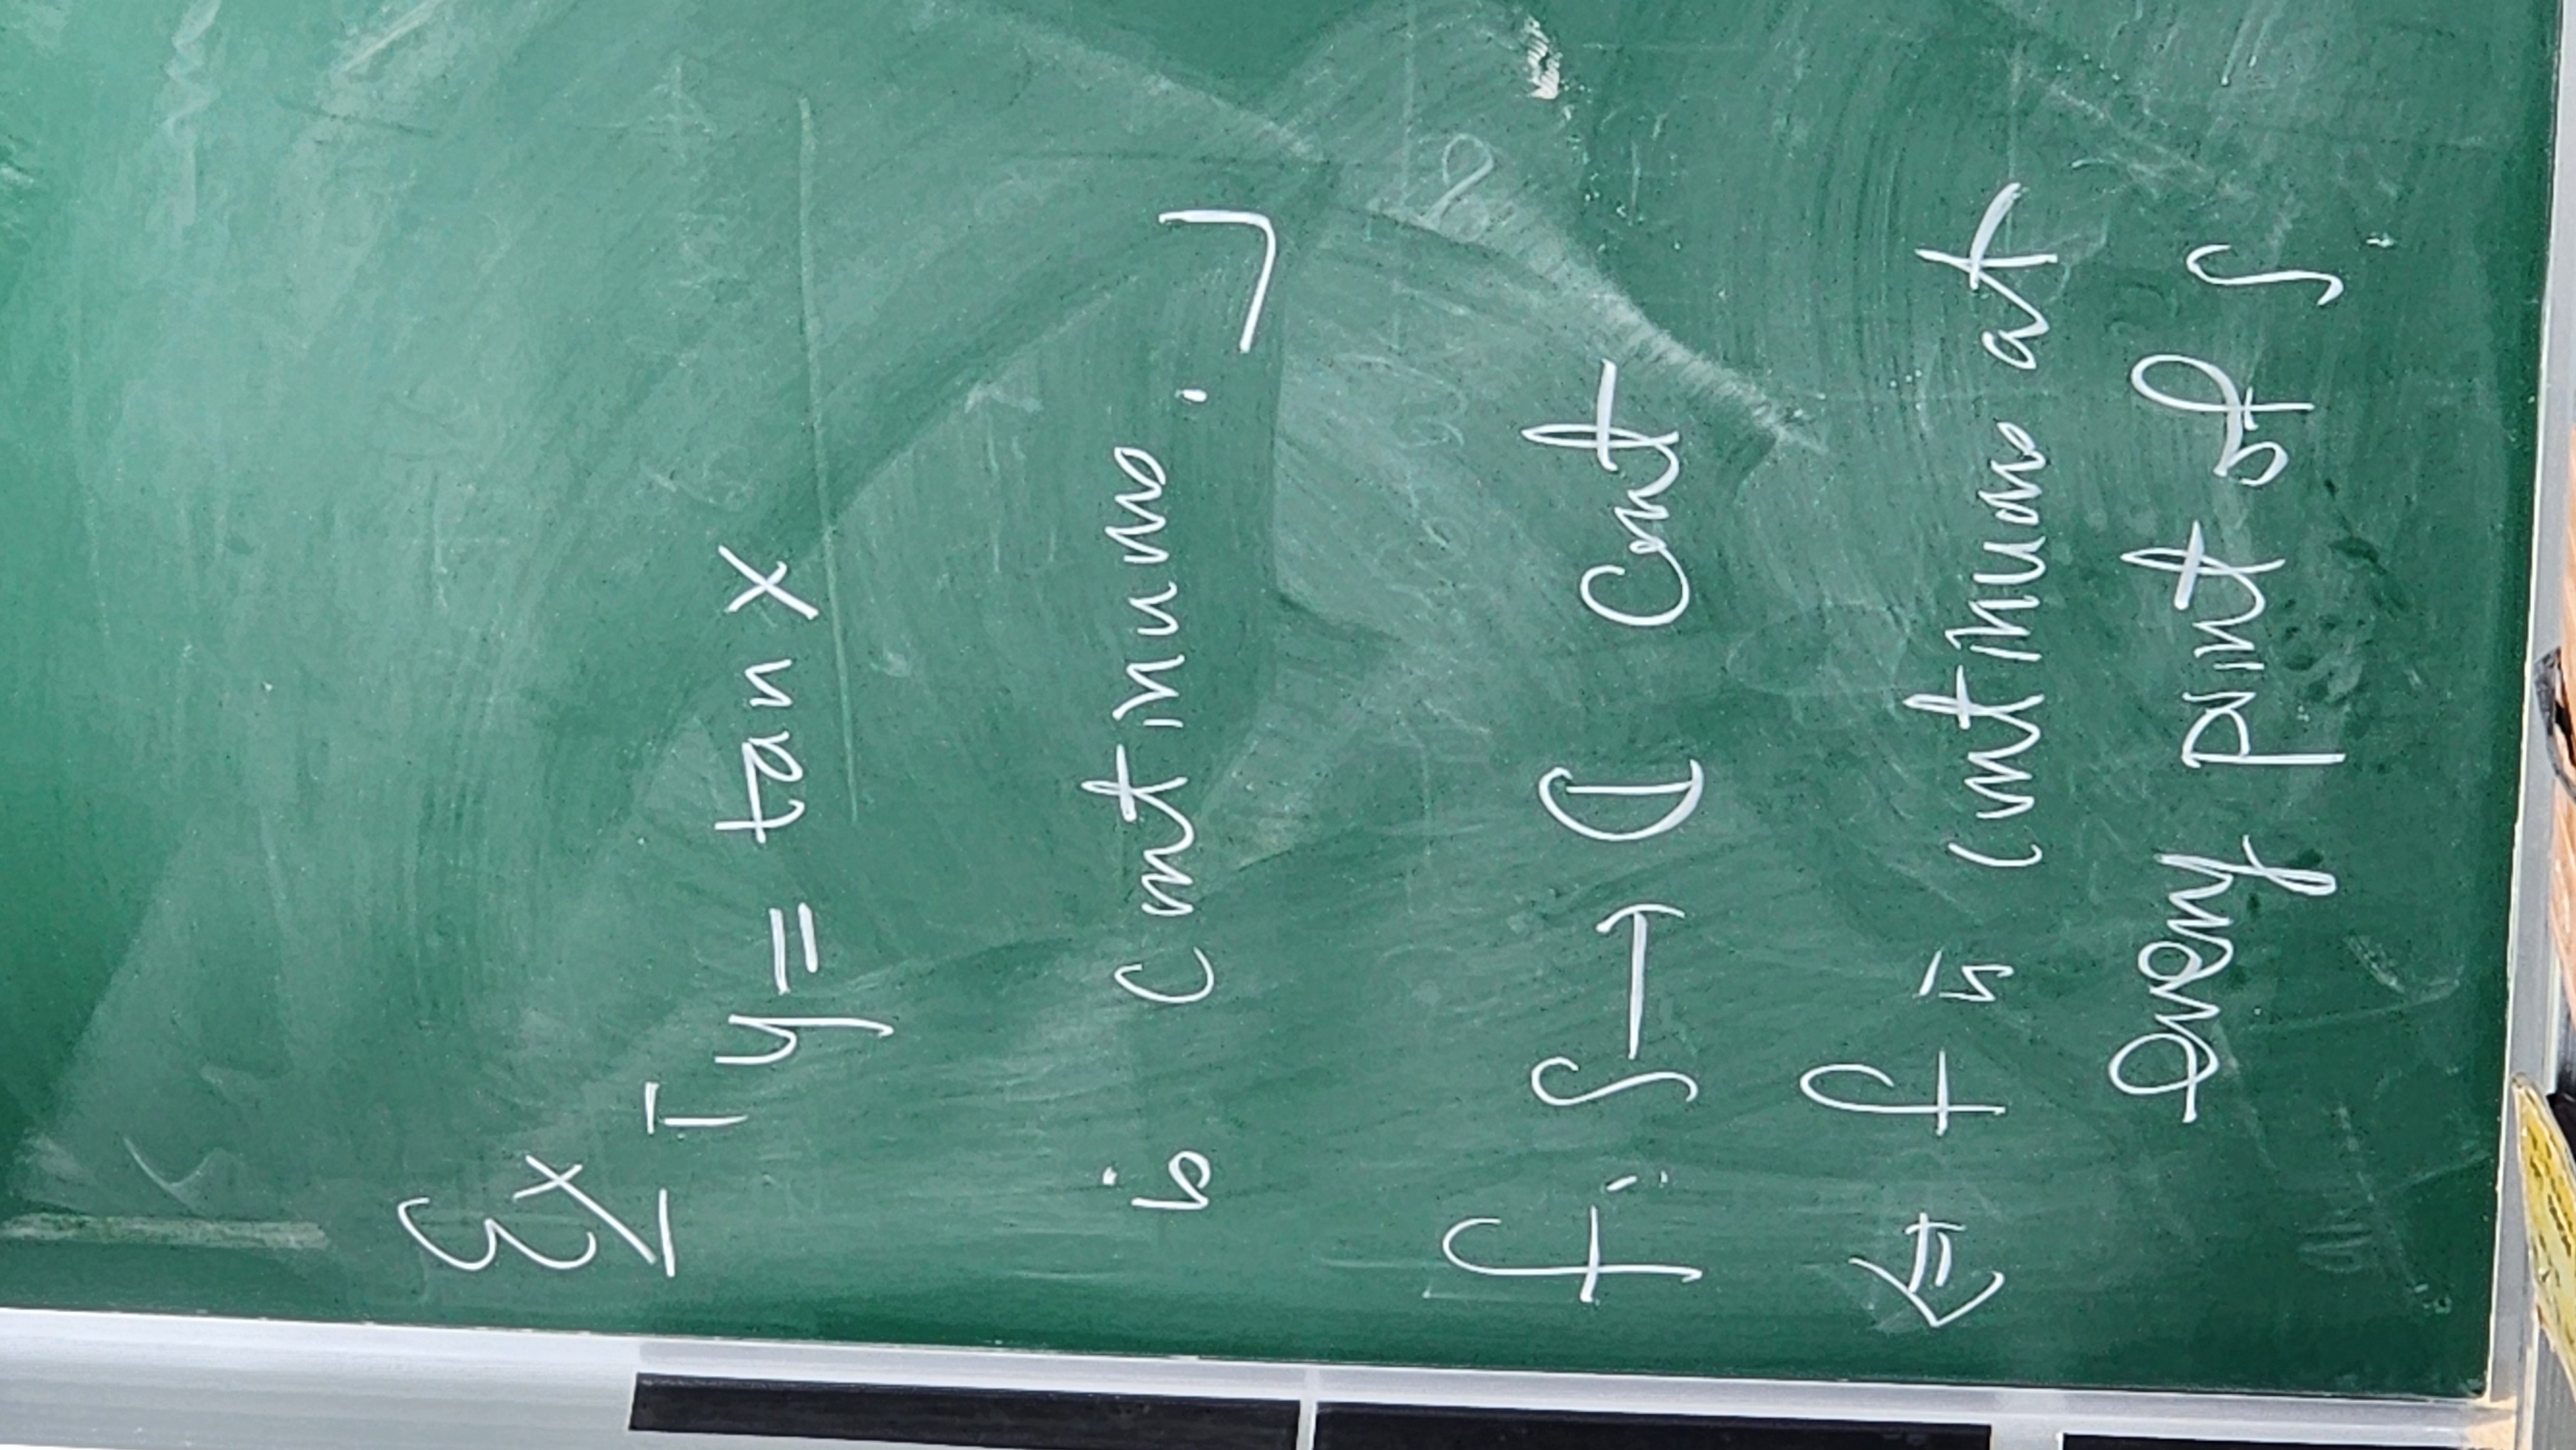 Ex
「y = tan x
is continuous.」
f: S → ℂ cont
⇔ f is continuous at
every point of S